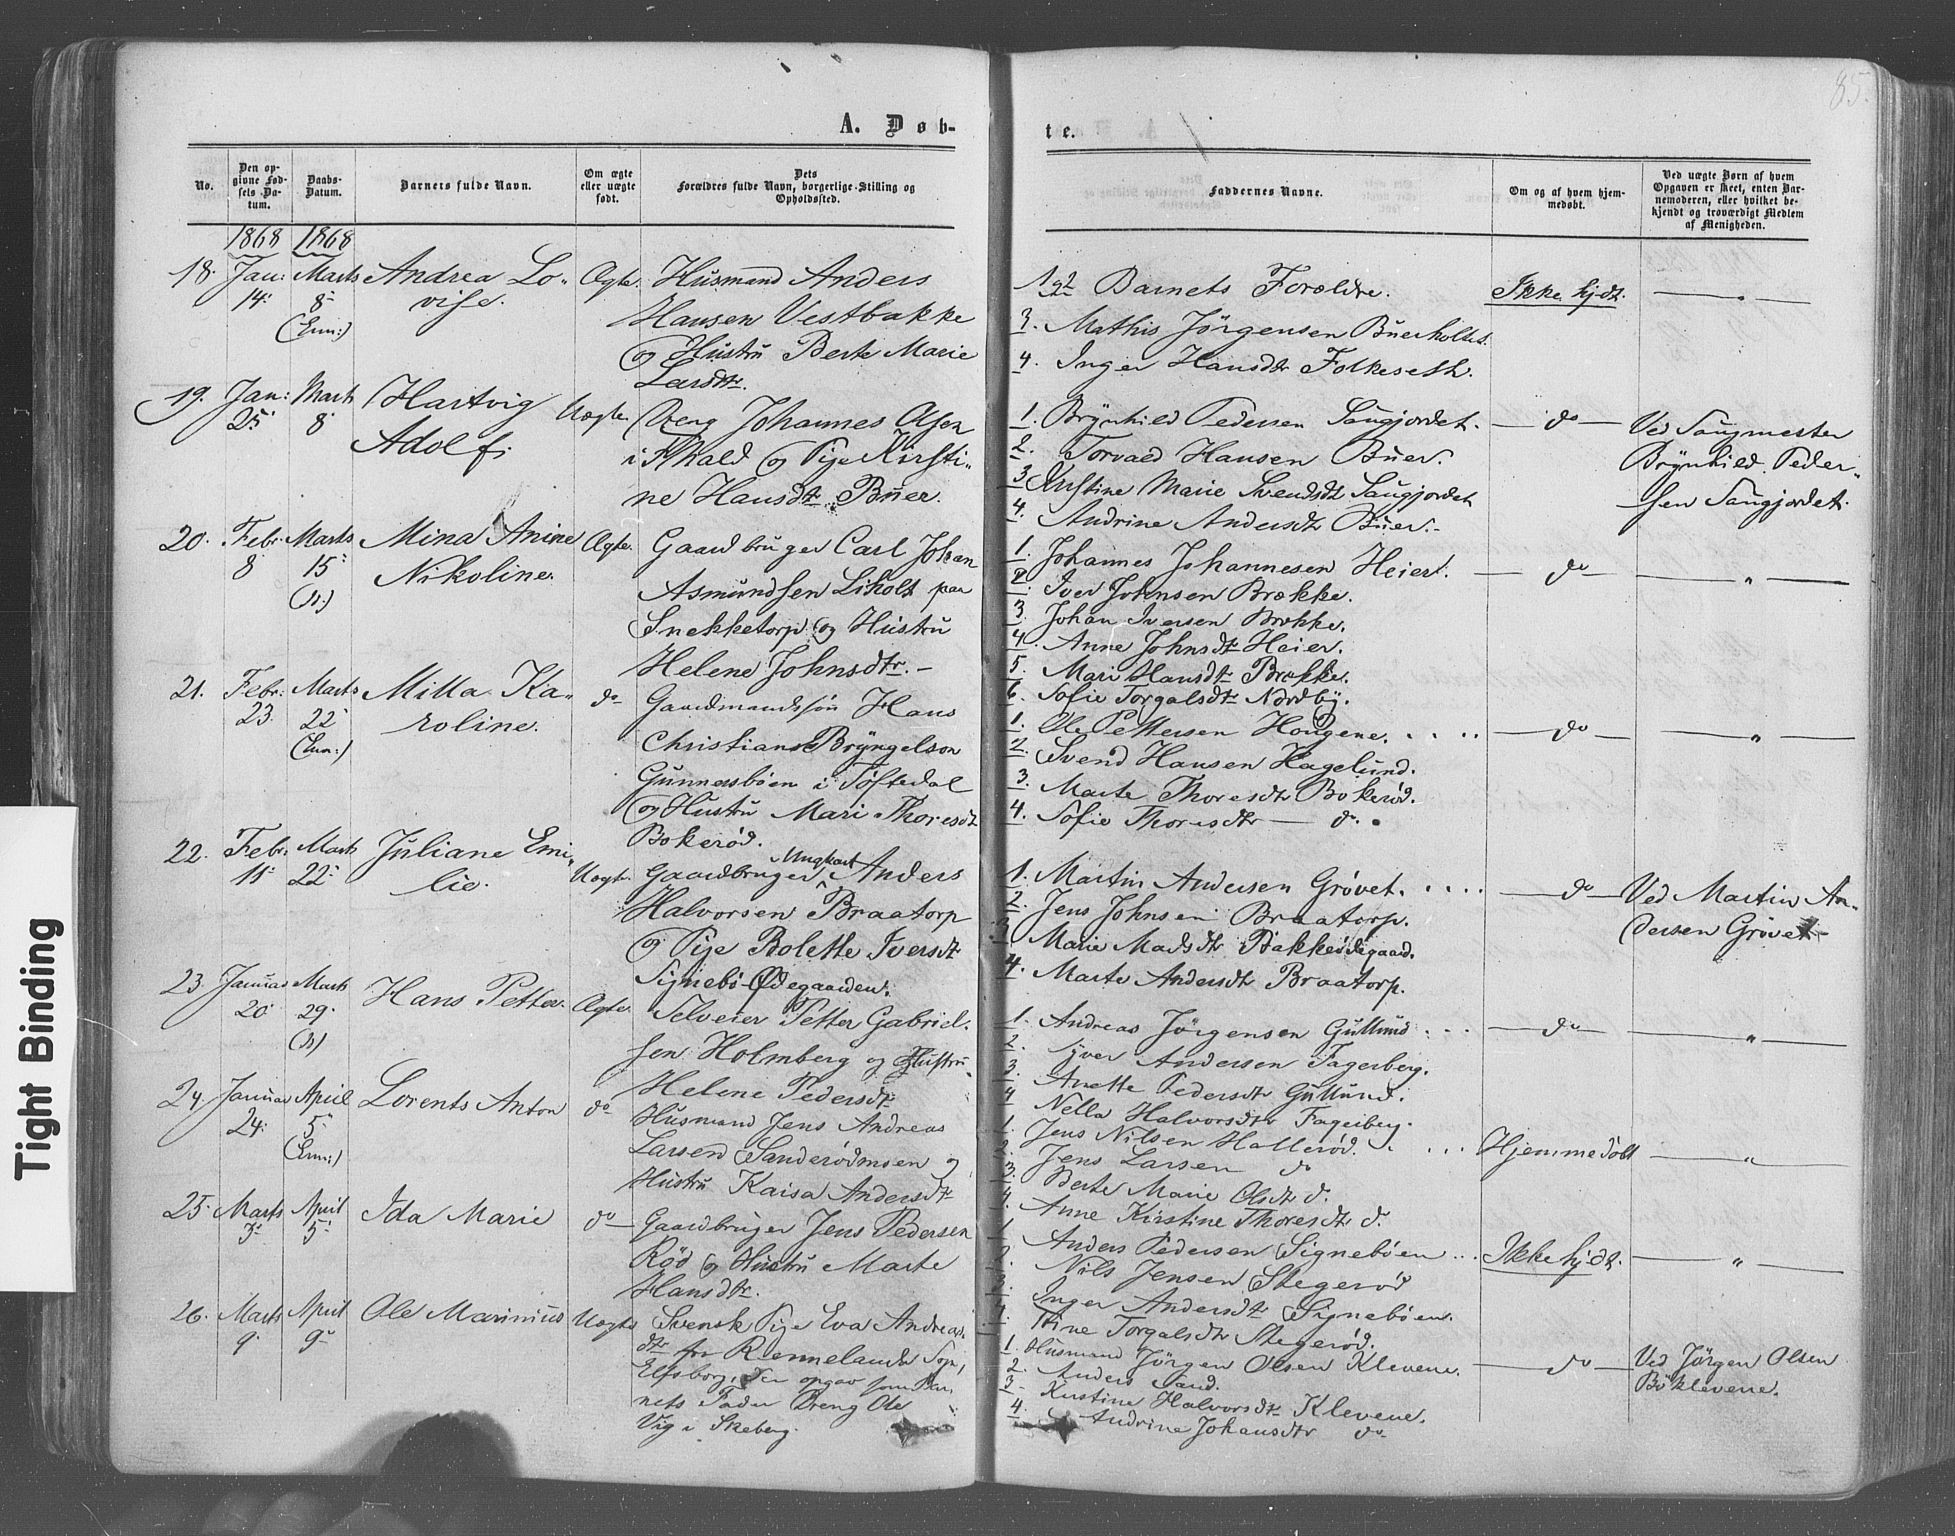 85.
A. Døb-
te.
No.
Den op-
givne Fød-
sels Da-
tum.
Daabs-
Datum.
Barnets fulde Navn.
Om ægte
eller uægte
født.
Dets
Forældres fulde Navn, borgerlige Stilling og
Opholdssted.
Faddernes Navne.
Om og af hvem hjem-
medøbt.
Ved uægte Børn af hvem
Opgaven er skeet, enten Bar-
nemoderen, eller hvilket be-
kjendt og troværdigt Medlem
af Menigheden.
1868 1868
18. Jan: 14. Marts 8 (Enn:)
Andrea Lo-
vise.
Ægte.
Husmand Anders
Hansen Vestbakke
og Hustru Berte Marie
Larsdtr.
1 og 2 Barnets Forældre.
3. Mathis Jörgensen Buerholtet.
4. Inger Hansdtr Folkeseth.
Ikke hjdt.
"
19. Jan: 25 Marts 8
Hartvig
Adolf.
Uægte.
Dreng Johannes Olsen
i Fr.hald og Pige Kirsti-
ne Hansdtr Buer.
1. Brynhild Pedersen Saugjordet.
2. Torvald Hansen Buer.
3. Kirstine Marie Svendsdtr Saugjordet
4. Andrine Andersdtr Buer.
do
Ved Saugmester
Brynhild Peder-
sen Saugjordet.
20. Febr: 8 Marts 15 (Is.)
Mina Anine
Nikoline.
Ægte.
Gaardbruger Carl Johan
Asmundsen Liholt paa
Snekketorp og Hustru
Helene Johnsdtr.
1. Johannes Johannesen Heier.
2. Iver Johnsen Brække.
3. Johan Iversen Brække.
4. Anne Johnsdtr Heier.
5. Mari Hansdtr Brække.
6. Sofie Torgalsdtr Nordby.
do
"
21. Febr: 23. Marts 22 (Enn:)
Milla Ka-
roline.
do
Gaardmandssön Hans
Christiansen Bryngelson
Gunnersböen i Töftedal
og Hustru Mari Thoresdtr
Bokerød.
1. Ole Pettersen Hougene.
2. Svend Hansen Hagelund.
3. Marte Thoresdtr Bokerød.
4. Sofie Thoresdtr do.
do
"
22. Febr: 11 Marts 22
Juliane Emi-
lie.
Uægte.
Gaardbruger Ungkarl Anders
Halvorsen Braatorp
og Pige Bolette Iversdtr
Signebö-Ødegaarden.
1. Martin Andersen Grøvet.
2. Jens Johnsen Braatorp.
3. Marie Madsdtr Bakkeødegaard.
4. Marte Andersdtr Braatorp.
do
Ved Martin An-
dersen Grøvet
23. Januar 20 Marts 29. (Is)
Hans Petter.
Ægte.
Selveier Petter Gabriel-
sen Holmberg og Hustru
Helene Pedersdtr.
1. Andreas Jörgensen Gullund.
2. Iver Andersen Fagerberg.
3. Anette Pedersdtr Gullund.
4 Nella Halvorsdtr Fagerberg.
do
"
24. Januar 24. April 5 (Enn:)
Lorents Anton
do
Husmand Jens Andreas
Larsen Sanderødmosen og
Hustru Kaisa Andersdtr
1. Jens Nilsen Hallerød.
2. Jens Larsen do
3. Berte Marie Olsdtr do.
4. Anne Kirstine Thoresdtr do.
Hjemmedöbt
"
25. Marts 3 April 5
Ida Marie
do
Gaardbruger Jens Pedersen
Röd og Hustru Marte
Hansdtr.
1 Anders Pedersen Signebøen
2. Nils Jensen Stegerød
3. Inger Andersdtr Signebøen.
4. Stine Torgalsdtr Stegerød.
Ikke hjdt.
"
26. Marts 9 April 9
Ole Marinius
Uægte
Svensk Pige Eva Andreas-
dtr fra Rennelanda Sogn,
Elfsborg, der opgav som Bar-
nets Fader Dreng Ole
Vig i Skeberg.
1. Husmand Jörgen Olsen Klevene.
2. Anders Sand.
3. Kirstine Halvorsdtr Klevene.
4. Andrine Johansdtr do
do
Ved Jörgen Olsen
Böklevene.
Tight Binding